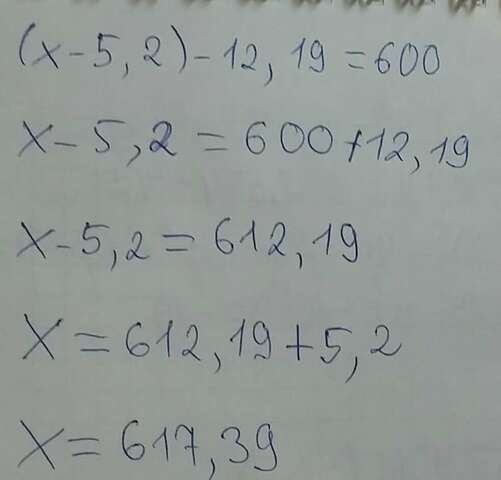 (x-5,2)-12,19=600
x-5,2=600+12,19
x-5,2=612,19
x=612,19+5,2
x=617,39